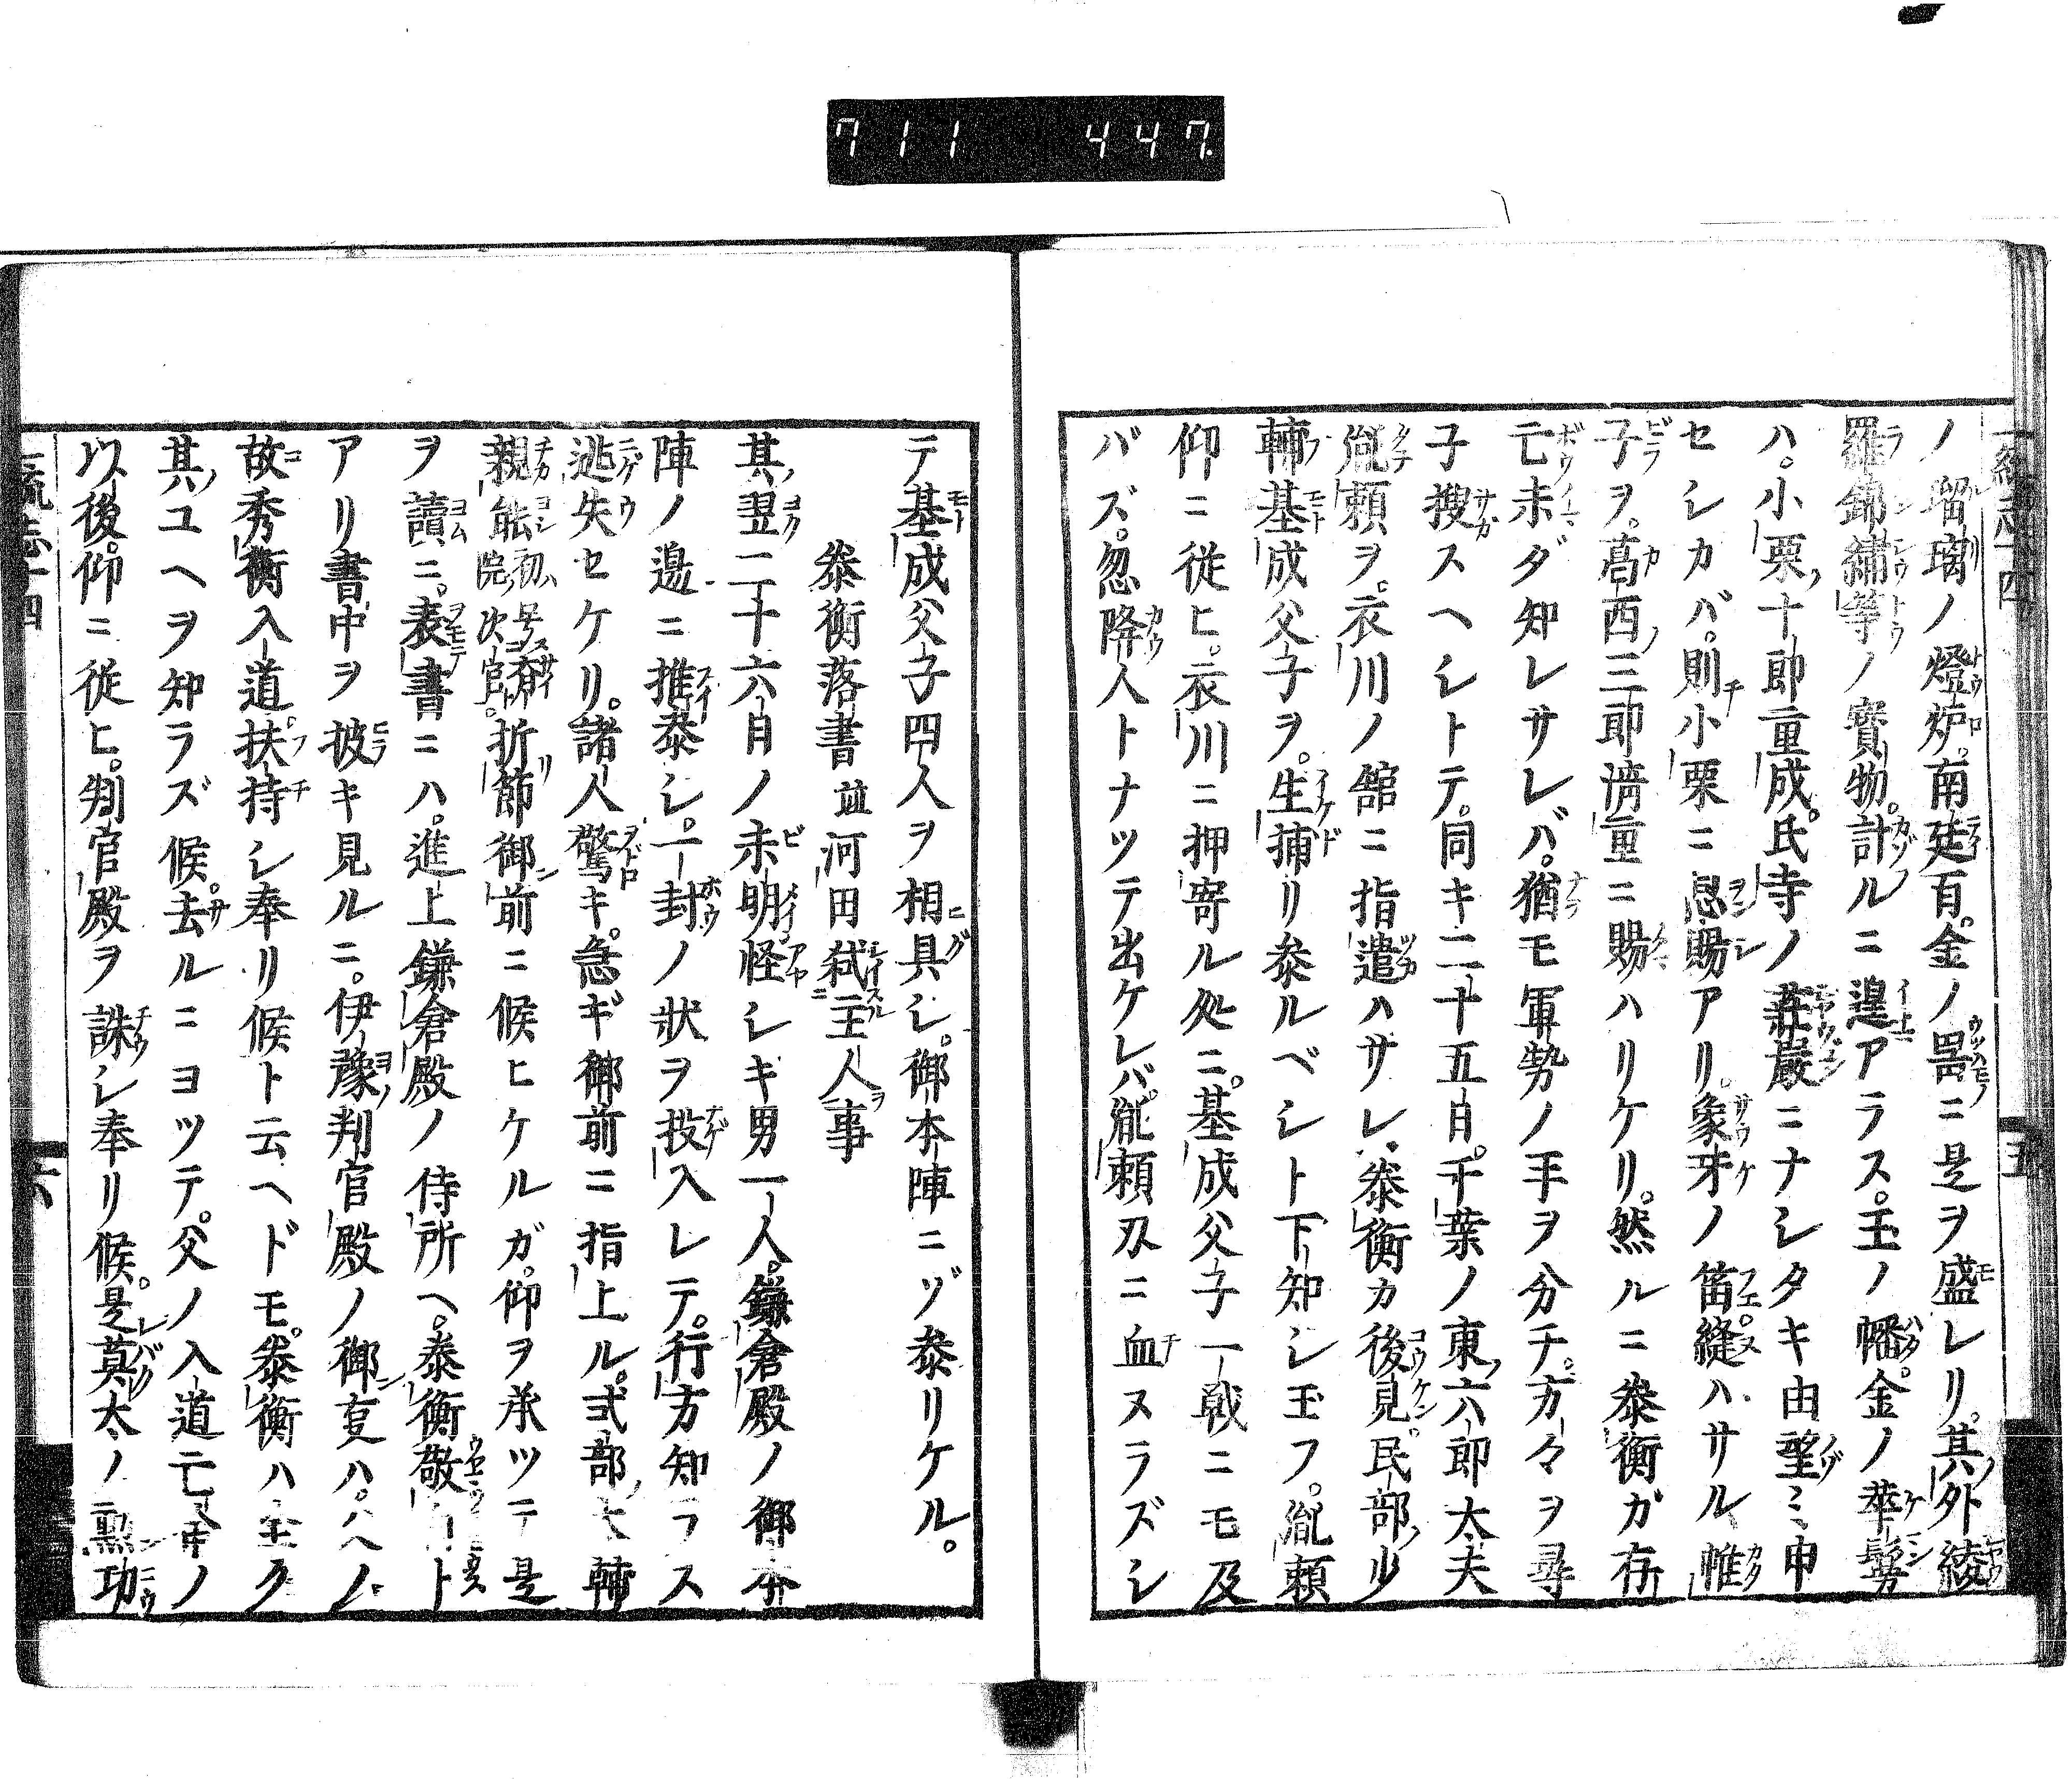 711 447.
ノ瑠璃ノ燈炉。南廷百。金ノ器ニ是ヲ盛レリ。其外綾
羅錦繍等ノ寳物。計ルニ遑アラス。玉ノ幡。金ノ華鬘
ハ。小栗十郎重成。氏寺ノ荘厳ニナシタキ由望ミ申
セシカバ。則小栗ニ恩賜アリ。象牙ノ笛。縫ハサル帷
子ヲ。葛西三郎清重ニ賜ハリケリ。然ルニ泰衡ガ存
亡未ダ知レサレバ。猶モ軍勢ノ手ヲ分チ。方々ヲ尋
子捜スヘシトテ。同キ二十五日。千葉ノ東六郎太夫
胤頼ヲ。衣川ノ舘ニ指遣ハサレ、泰衡カ後見。民部少
輔基成父子ヲ。生捕リ参ルベシト下知シ玉フ。胤頼
仰ニ従ヒ。衣川ニ押寄ル処ニ。基成父子一戦ニモ及
バズ。忽降人トナツテ出ケレバ。胤頼刄ニ血ヌラズシ
テ基成父子四人ヲ相具シ。御本陣ニゾ参リケル。
泰衡落書並河田弑主人事
其翌二十六日ノ未明怪シキ男一人。鎌倉殿ノ御本
陣ノ邉ニ推泰シ。一封ノ状ヲ投入レテ。行方知ラス
逃失セケリ。諸人驚キ。急ギ御前ニ指上ル。式部大輔
親能初ハ号斎院次官折節御前ニ候ヒケルガ。仰ヲ承ツテ是
ヲ讀ニ。表書ニハ。進上鎌倉殿ノ侍所ヘ。泰衡敬ト
アリ書中ヲ披キ見ルニ。伊豫判官殿ノ御亊ハ。ノ
故秀衡入道。扶持シ奉リ候ト云ヘドモ。泰衡ハ全ク
其ユヘヲ知ラズ候。去ルニヨツテ。父ノ入道亡命ノ
以後。仰ニ従ヒ。判官殿ヲ誅シ奉リ候。是莫太ノ勲功
六